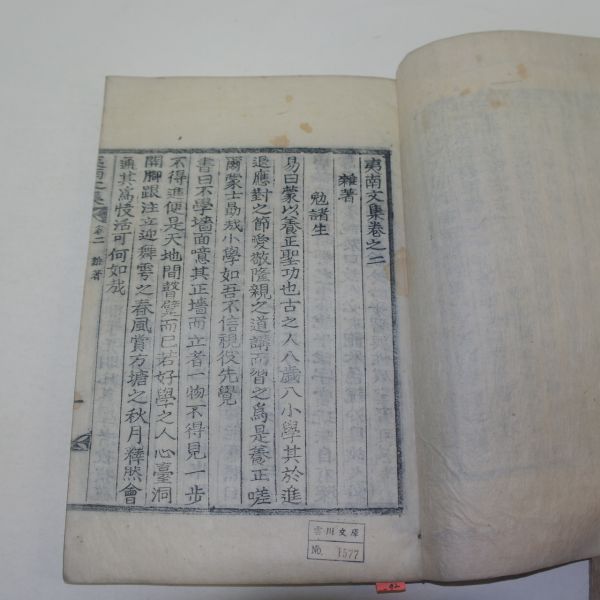 夷南文集卷之二
雜著
勉諸生
易曰蒙以養正聖功也古之人八歲入小學其於進
退應對之節愛敬隆親之道講而習之爲是養正嗟
爾蒙士勗哉小學如吾不信視彼先覺
書曰不學墻面噫其正墻而立者一物不得見一步
不得進便是天地間聾躄而已若好學之人心臺洞
開腳跟注立迎舞雩之春風賞方塘之秋月釋然會
無其爲快活可何如哉
夷南文集
卷二
雜著
一
雲川文庫
No. 1577